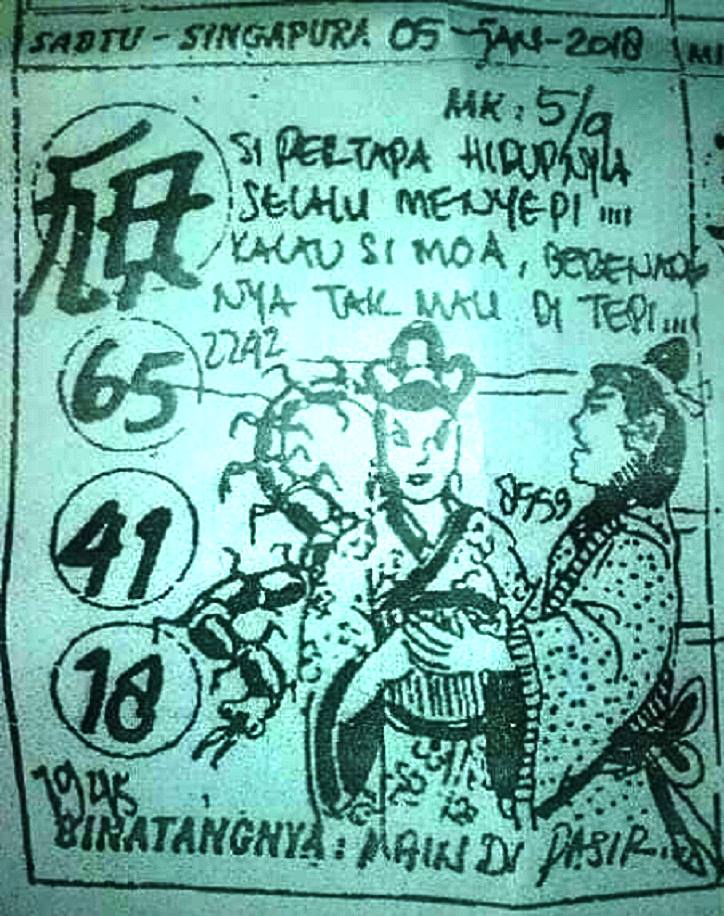 SABTU - SINGAPURA 05 - JAN - 2018
MK : 5/9
SI PERTAPA HIDUPNYA
SELALU MENYEPI ....
KALAU SI MOA, BERENANG
NYA TAK MAU DI TEPI....
65
2242
8559
41
18
1945
BINATANGNYA : MAIN DI PASIR...